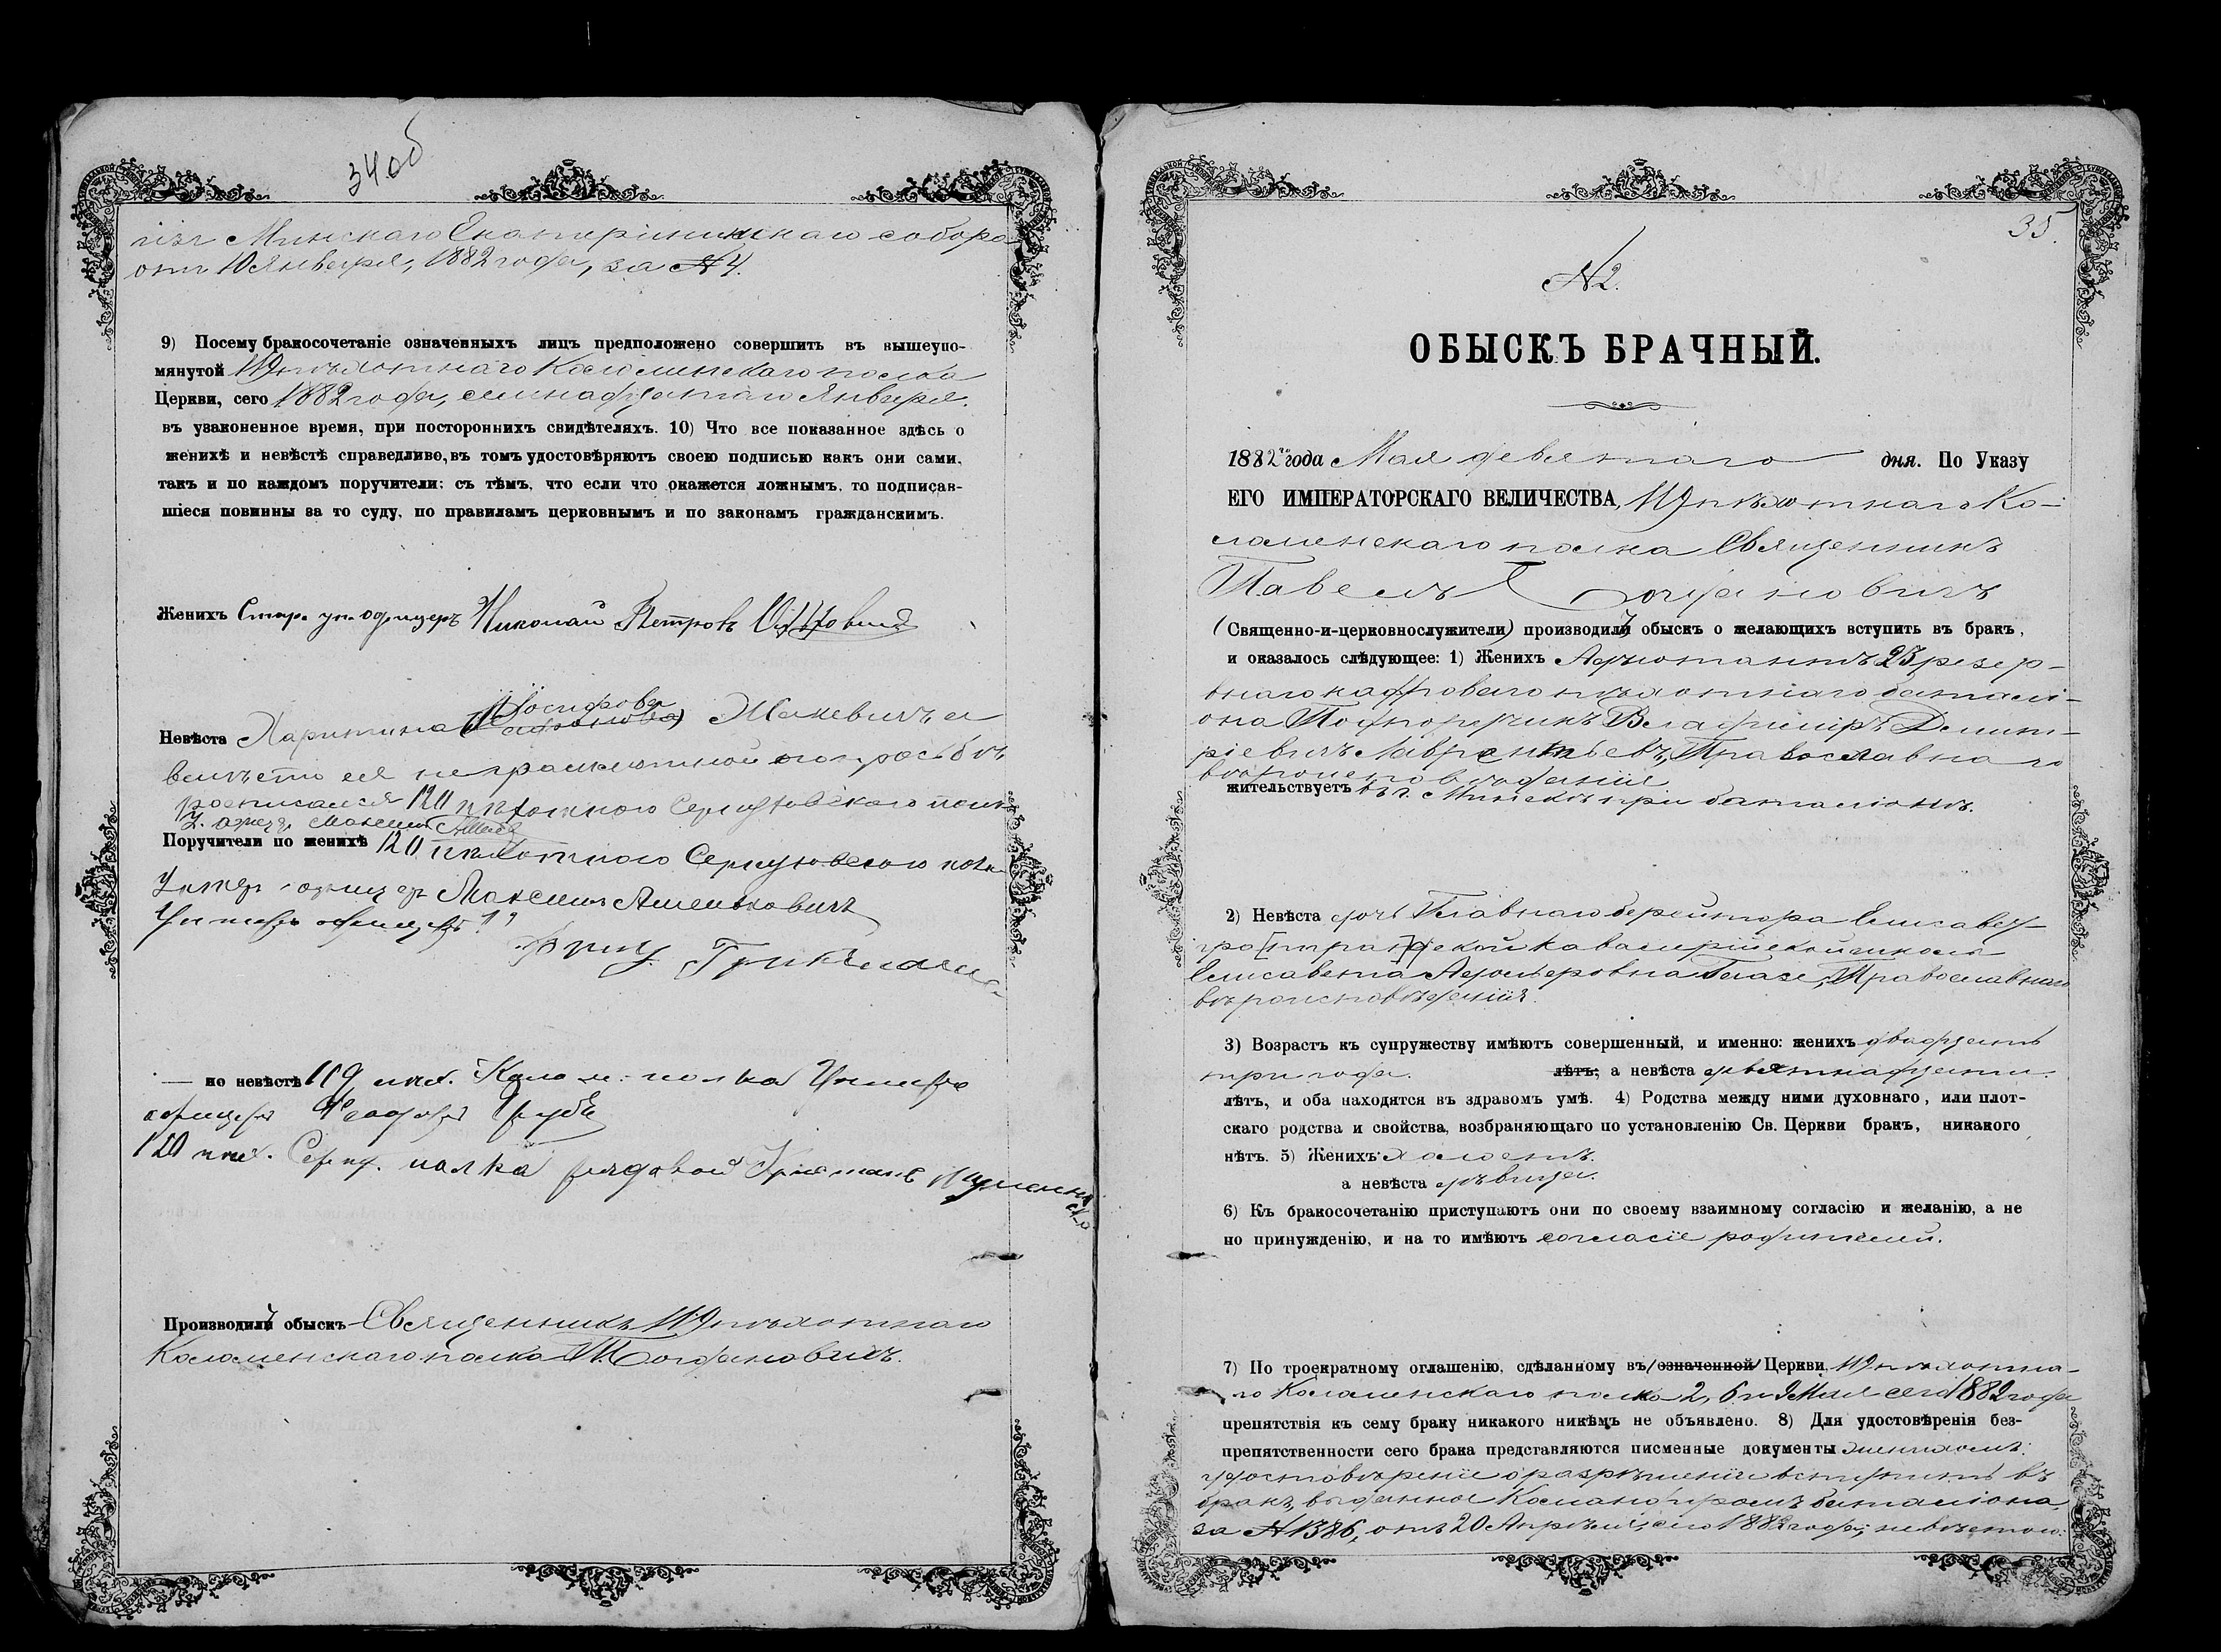 34 об
изъ Минскаго Екатерининскаго собора
отъ 10 Января, 1882 года, за № 4.
9) Посему бракосочетаніе означенныхъ лицъ предположено совершить въ вышеупо-
мянутой 119 пѣхотнаго Коломенскаго полка
Церкви, сего 1882 года, семнадцатаго Января.
въ узаконенное время, при постороннихъ свидѣтеляхъ. 10) Что все показанное здѣсь о
женихѣ и невѣстѣ справедливо, въ томъ удостовѣряютъ своею подписью какъ они сами,
такъ и по каждомъ поручители; съ тѣмъ, что если что окажется ложнымъ, то подписав-
шіеся повинны за то суду, по правиламъ церковнымъ и по законамъ гражданскимъ.
Женихъ Стар. ун. офицеръ Николай Петровъ
Іосифова
Невѣста Харитина Макевичъ а
вмѣсто ея неграмотной по просьбѣ
росписался 120 пѣхотного Серпуховского полка
У. офице. Максимъ
Поручители по женихѣ 120 пѣхотного Серпуховского полка
Унтеръ-офицеръ Максимъ Ашенковичъ
Унтеръ офицеръ
Фриц
— по невѣстѣ 119 пѣх. Колом. полка Унтеръ
офицеръ Феодоръ
120 пѣх. Серпу. полка рядовой
Производилъ обыскъ Священникъ 119 пѣхотнаго
Коломенскаго полка П. Богдановичъ.
35.
№ 2.
ОБЫСКЪ БРАЧНЫЙ.
1882 года Мая девятаго дня. По Указу
ЕГО ИМПЕРАТОРСКАГО ВЕЛИЧЕСТВА, 119 пѣхотнаго Ко-
ломенскаго полка Священникъ
Павелъ Богдановичъ
(Священно-и-церковнослужители) производилъ обыскъ о желающихъ вступить въ бракъ,
и оказалось слѣдующее: 1) Женихъ Адъютантъ 23 резер-
внаго кадроваго пѣхотнаго баталі-
она Подпоручикъ Владиміръ Димит-
ріевичъ Лаврентьевъ, Православнаго
вѣроисповѣданія
жительствуетъ въ г. Минскѣ при баталіонѣ.
2) Невѣста дочь Главнаго берейтора Елисавет-
градской кавалерійской школы
Елисавета Адольфовна Глазе, Православнаго
вѣроисповѣданія.
3) Возрастъ къ супружеству имѣютъ совершенный, и именно: женихъ двадцать
три года. лѣтъ; а невѣста девятнадцати
лѣтъ, и оба находятся въ здравомъ умѣ. 4) Родства между ними духовнаго, или плот-
скаго родства и свойства, возбраняющаго по установленію Св. Церкви бракъ, никакого
нѣтъ. 5) Женихъ холостъ.
а невѣста дѣвица.
6) Къ бракосочетанію приступаютъ они по своему взаимному согласію и желанію, а не
по принужденію, и на то имѣютъ согласіе родителей.
7) По троекратному оглашенію, сдѣланному въ означенной Церкви, 119 пѣхотна-
го Коломенскаго полка 2, 6 и 9 Мая сего 1882 года
препятствія къ сему браку никакого никѣмъ не объявлено. 8) Для удостовѣренія без-
препятственности сего брака представляются писменные документы женихомъ:
удостовѣреніе о разрѣшеніи вступить въ
бракъ, выданное Командиромъ баталіона,
за № 1386, отъ 20 Апрѣля, сего 1882 года; невѣстою: